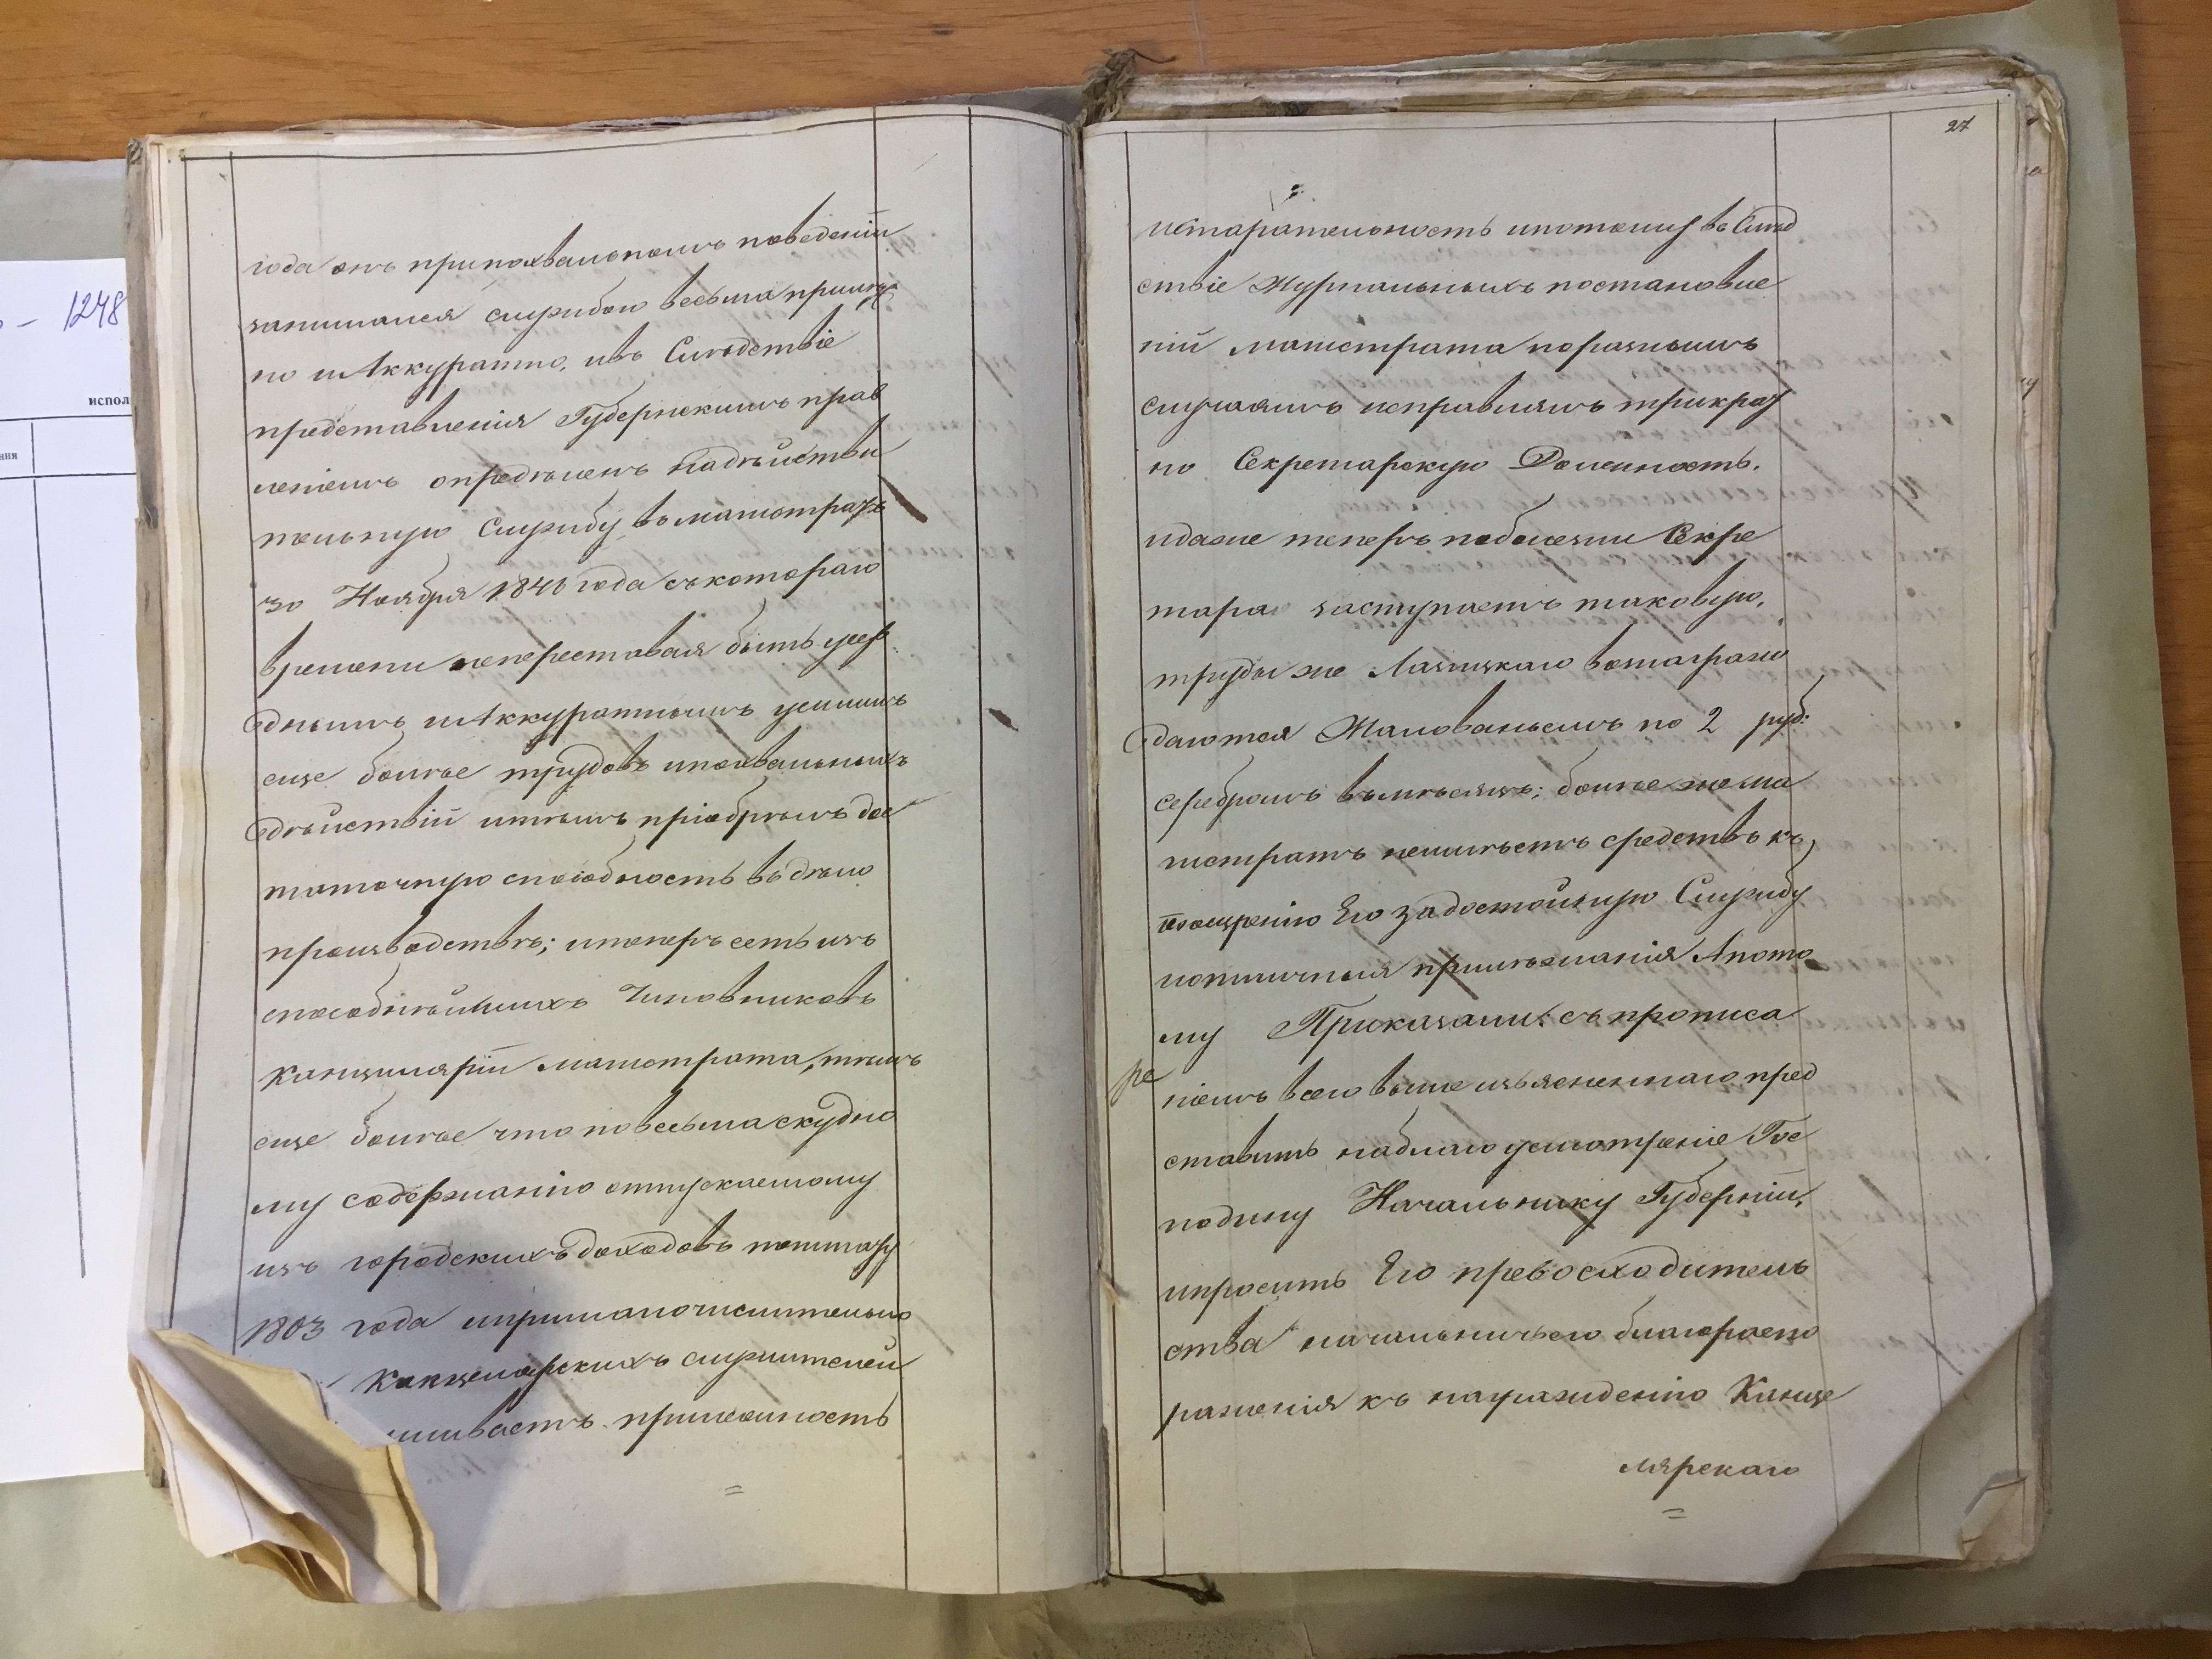 1248
испол
ния
года онъ припохвальномъ поведеніи
занимался службою весьма прилѣж
но иАккуратно, ивъ Слѣдствіе
представленія Губернскимъ прав
леніемъ опредѣленъ надѣйстви
тельную Службу въ магистратъ
30 Ноября 1840 года съкотораго
времени непереставая быть усер
днымъ иАккуратнымъ усилилъ
еще болѣе трудовъ ипохвальныхъ
дѣйствій итѣмъ пріобрѣлъ дос
таточную способность въ дѣло
производствѣ; итеперь есть изъ
способнѣйшихъ Чиновниковъ
Канцеляріи магистрата, тѣмъ
еще болѣе что повесьма скудно
му содержанію отпускаемому
изъ городскихъ доходовъ поштату
1803 года ипри малочислительно
Канцелярскихъ служителей
прилежность
27
истарательность ипотому въ Слѣд
ствіе Журнальныхъ постановле
ній магистрата поразнымъ
случаямъ исправлялъ трикрат
но Секретарскую Должность.
идаже теперь поболезни Секре
тара заступаетъ таковую,
труды же Лазицкаго вознагражд
даются Жалованьемъ по 2 руб:
серебромъ вмѣсяцъ; более же ма
гистратъ неимѣетъ средствъ къ
поощренію Его задостойную Службу
иотличныя прилѣжанія Апото
му Приказали: съ прописа
ніемъ всего выше изъясненнаго пред
ре
ставить наблагоусмотреніе Гос
подину Начальнику Губерніи,
ипросить Его превосходитель
ства начальничьего благораспо
раженія къ награжденію Канце
лярскаго